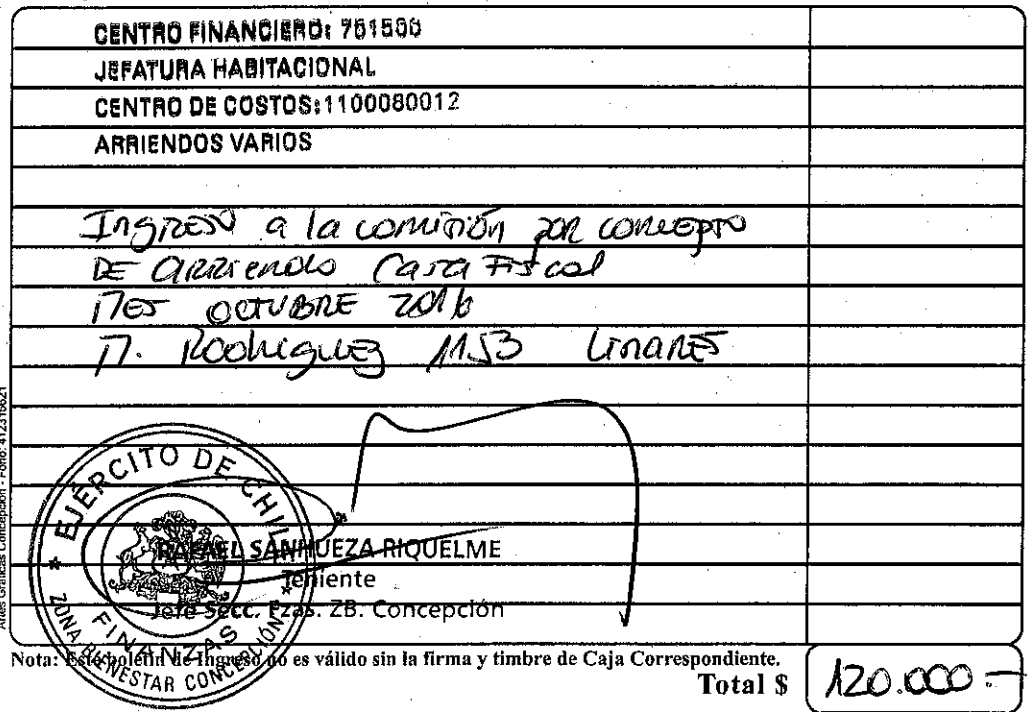 CENTRO FINANCIERO: 761500
JEFATURA HABITACIONAL
CENTRO DE COSTOS:1100080012
ARRIENDOS VARIOS
Ingreso a la comisión por concepto
DE arriendo Casa Fiscal
Mes OCTUBRE 2016
M. Rodriguez 1153 Linares
EJÉRCITO DE CHILE
FINANZAS
ZONA BIENESTAR CONCEPCIÓN
RAFAEL SANHUEZA RIQUELME
Teniente
Jefe Secc. Fzas. ZB. Concepción
Nota: Este boletín de Ingreso no es válido sin la firma y timbre de Caja Correspondiente.
Total $ 120.000=
Artes Gráficas Concepción - Fono: 412316621